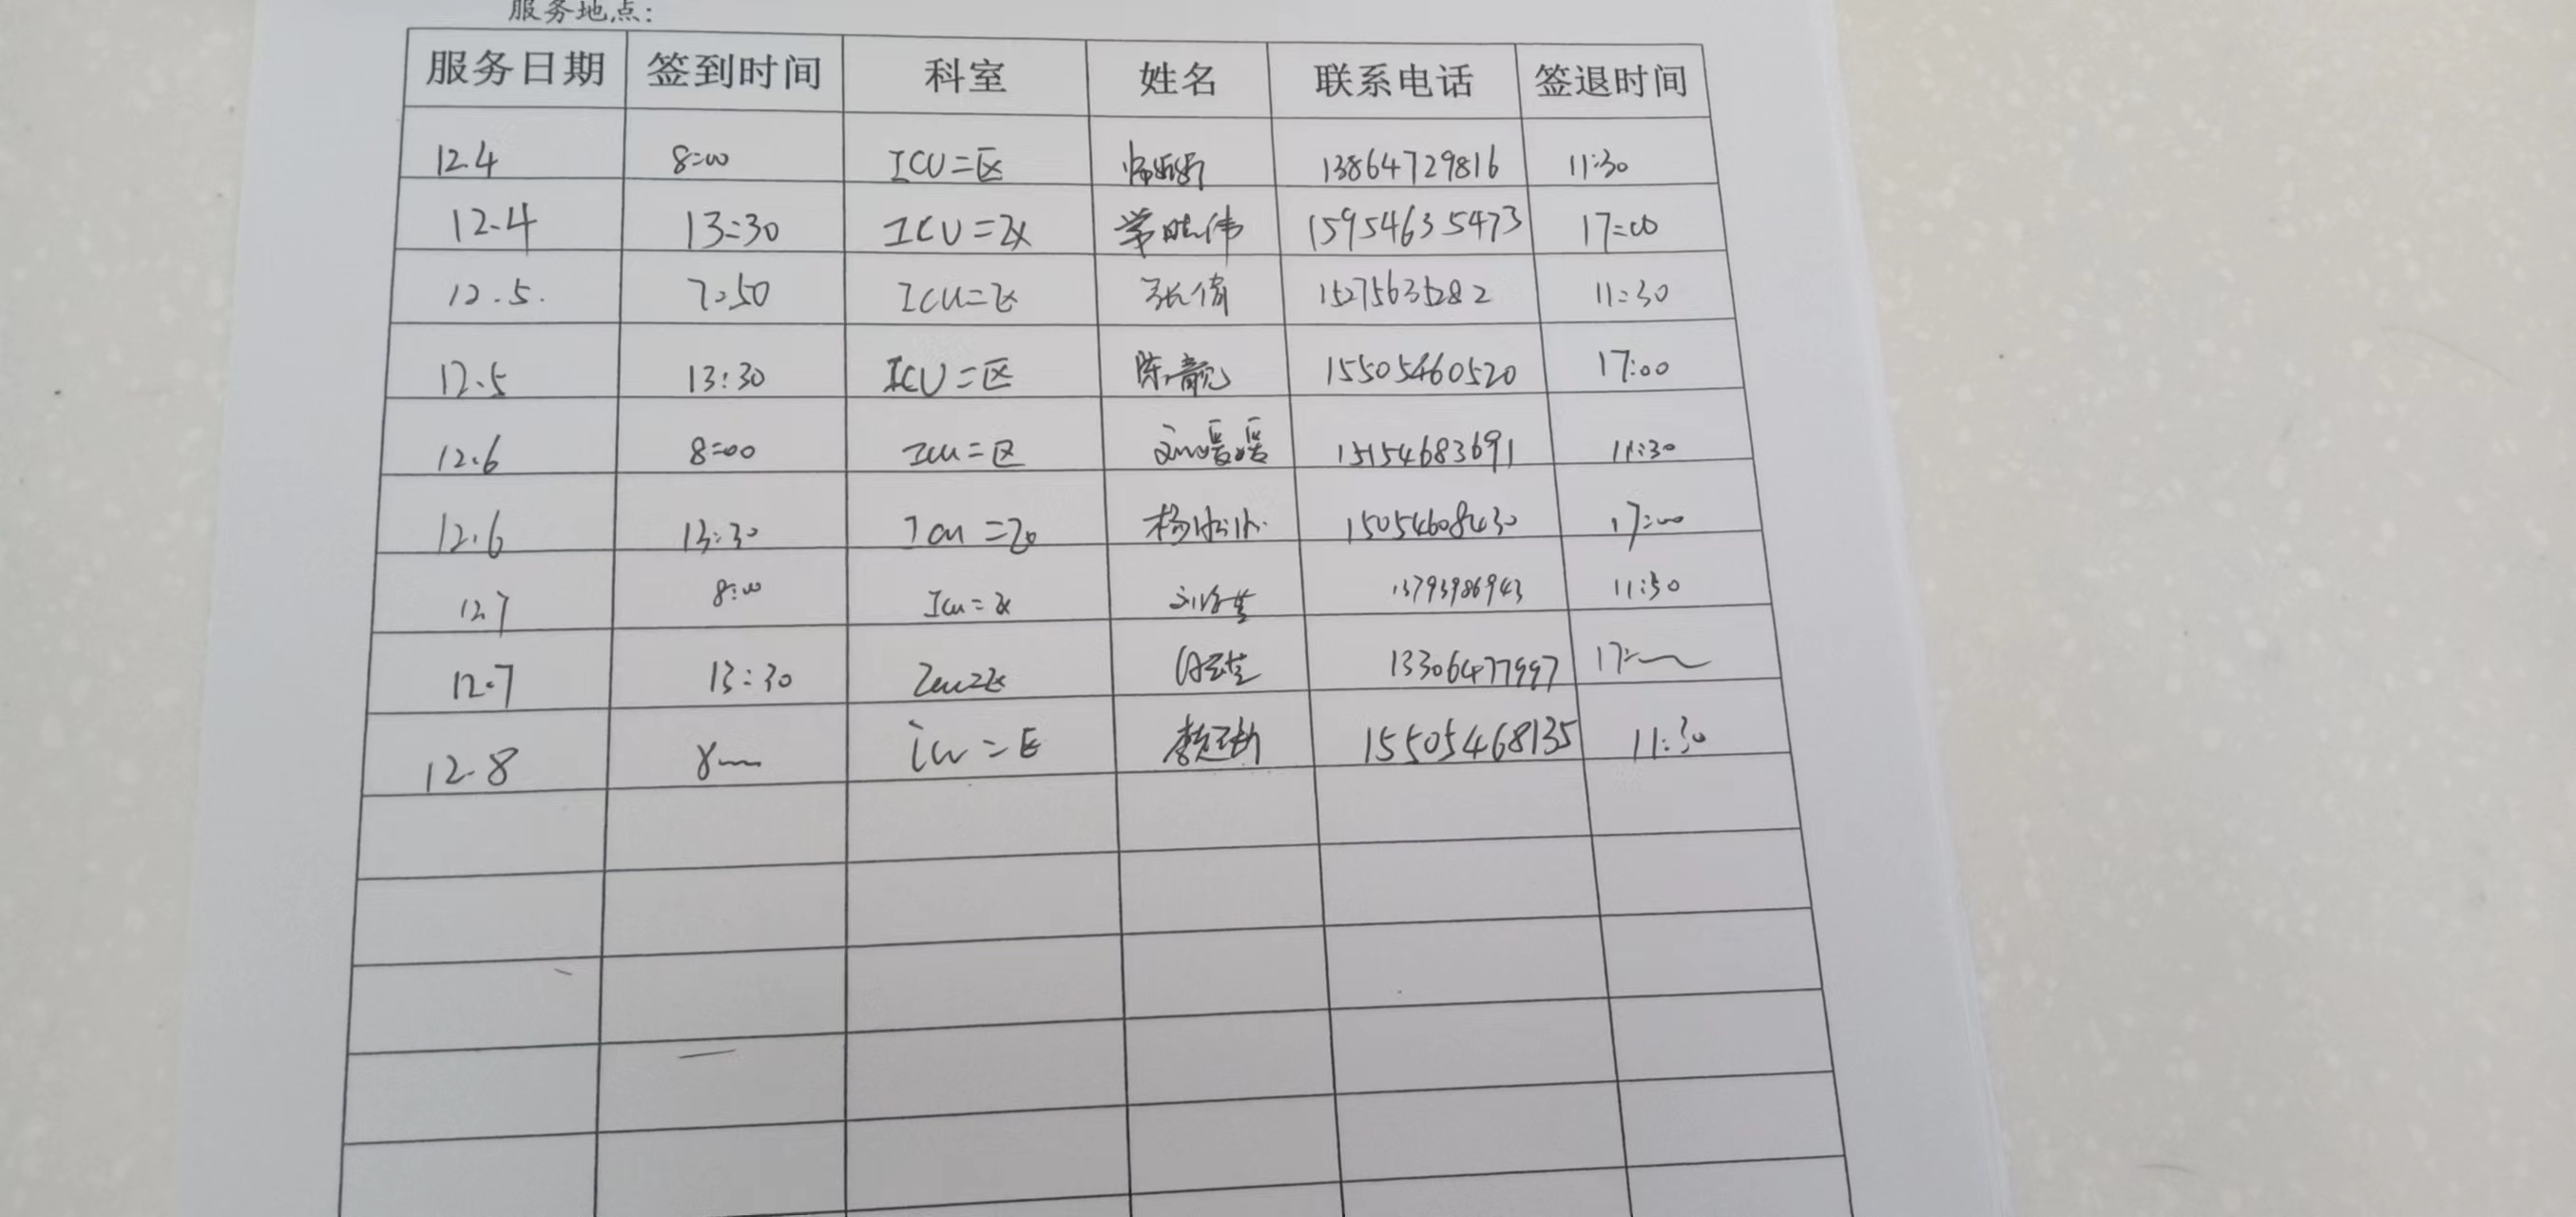 服务地点:
服务日期 签到时间 科室 姓名 联系电话 签退时间
12.4 8:00 ICU二区 13864729816 11:30
12.4 13:30 ICU二区 常晓伟 15954635473 17:00
12.5. 7:50 ICU二区 张倩 15275635282 11:30
12.5 13:30 ICU二区 陈靓 15505460520 17:00
12.6 8:00 ICU二区 刘媛媛 15154683691 11:30
12.6 13:30 ICU二区 15054608430 17:00
12.7 8:00 ICU二区 13793986943 11:30
12.7 13:30 ICU二区 13306477997 17:
12.8 8 icu二区 15505468135 11:30